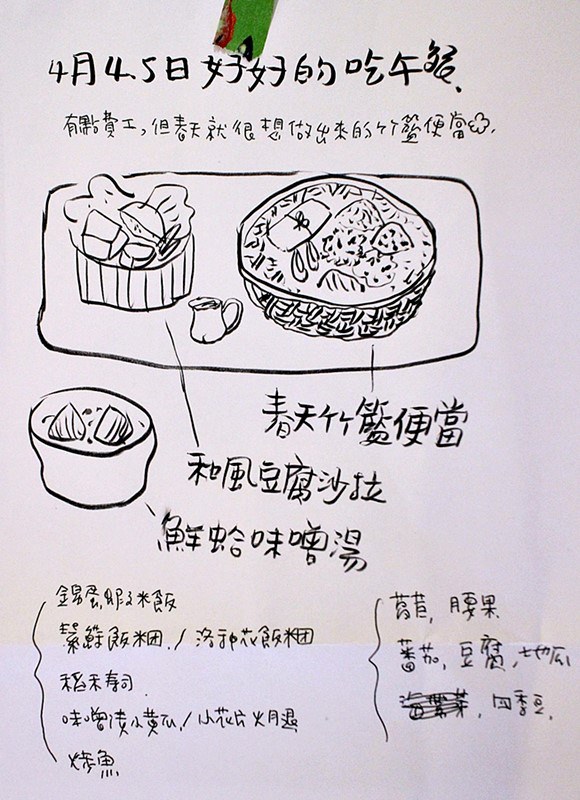 4月4.5日好好的吃午餐、
有點費工,但春天就很想做出來的竹籃便當,
春天竹籃便當
和風豆腐沙拉
鮮蛤味噌湯
錦蛋蝦米飯
紫蘇飯糰/洛神花飯糰
稻禾寿司
味噌漬小黃瓜/小花片火腿
烤魚
萵苣,腰果
蕃茄,豆腐,地瓜
四季豆,